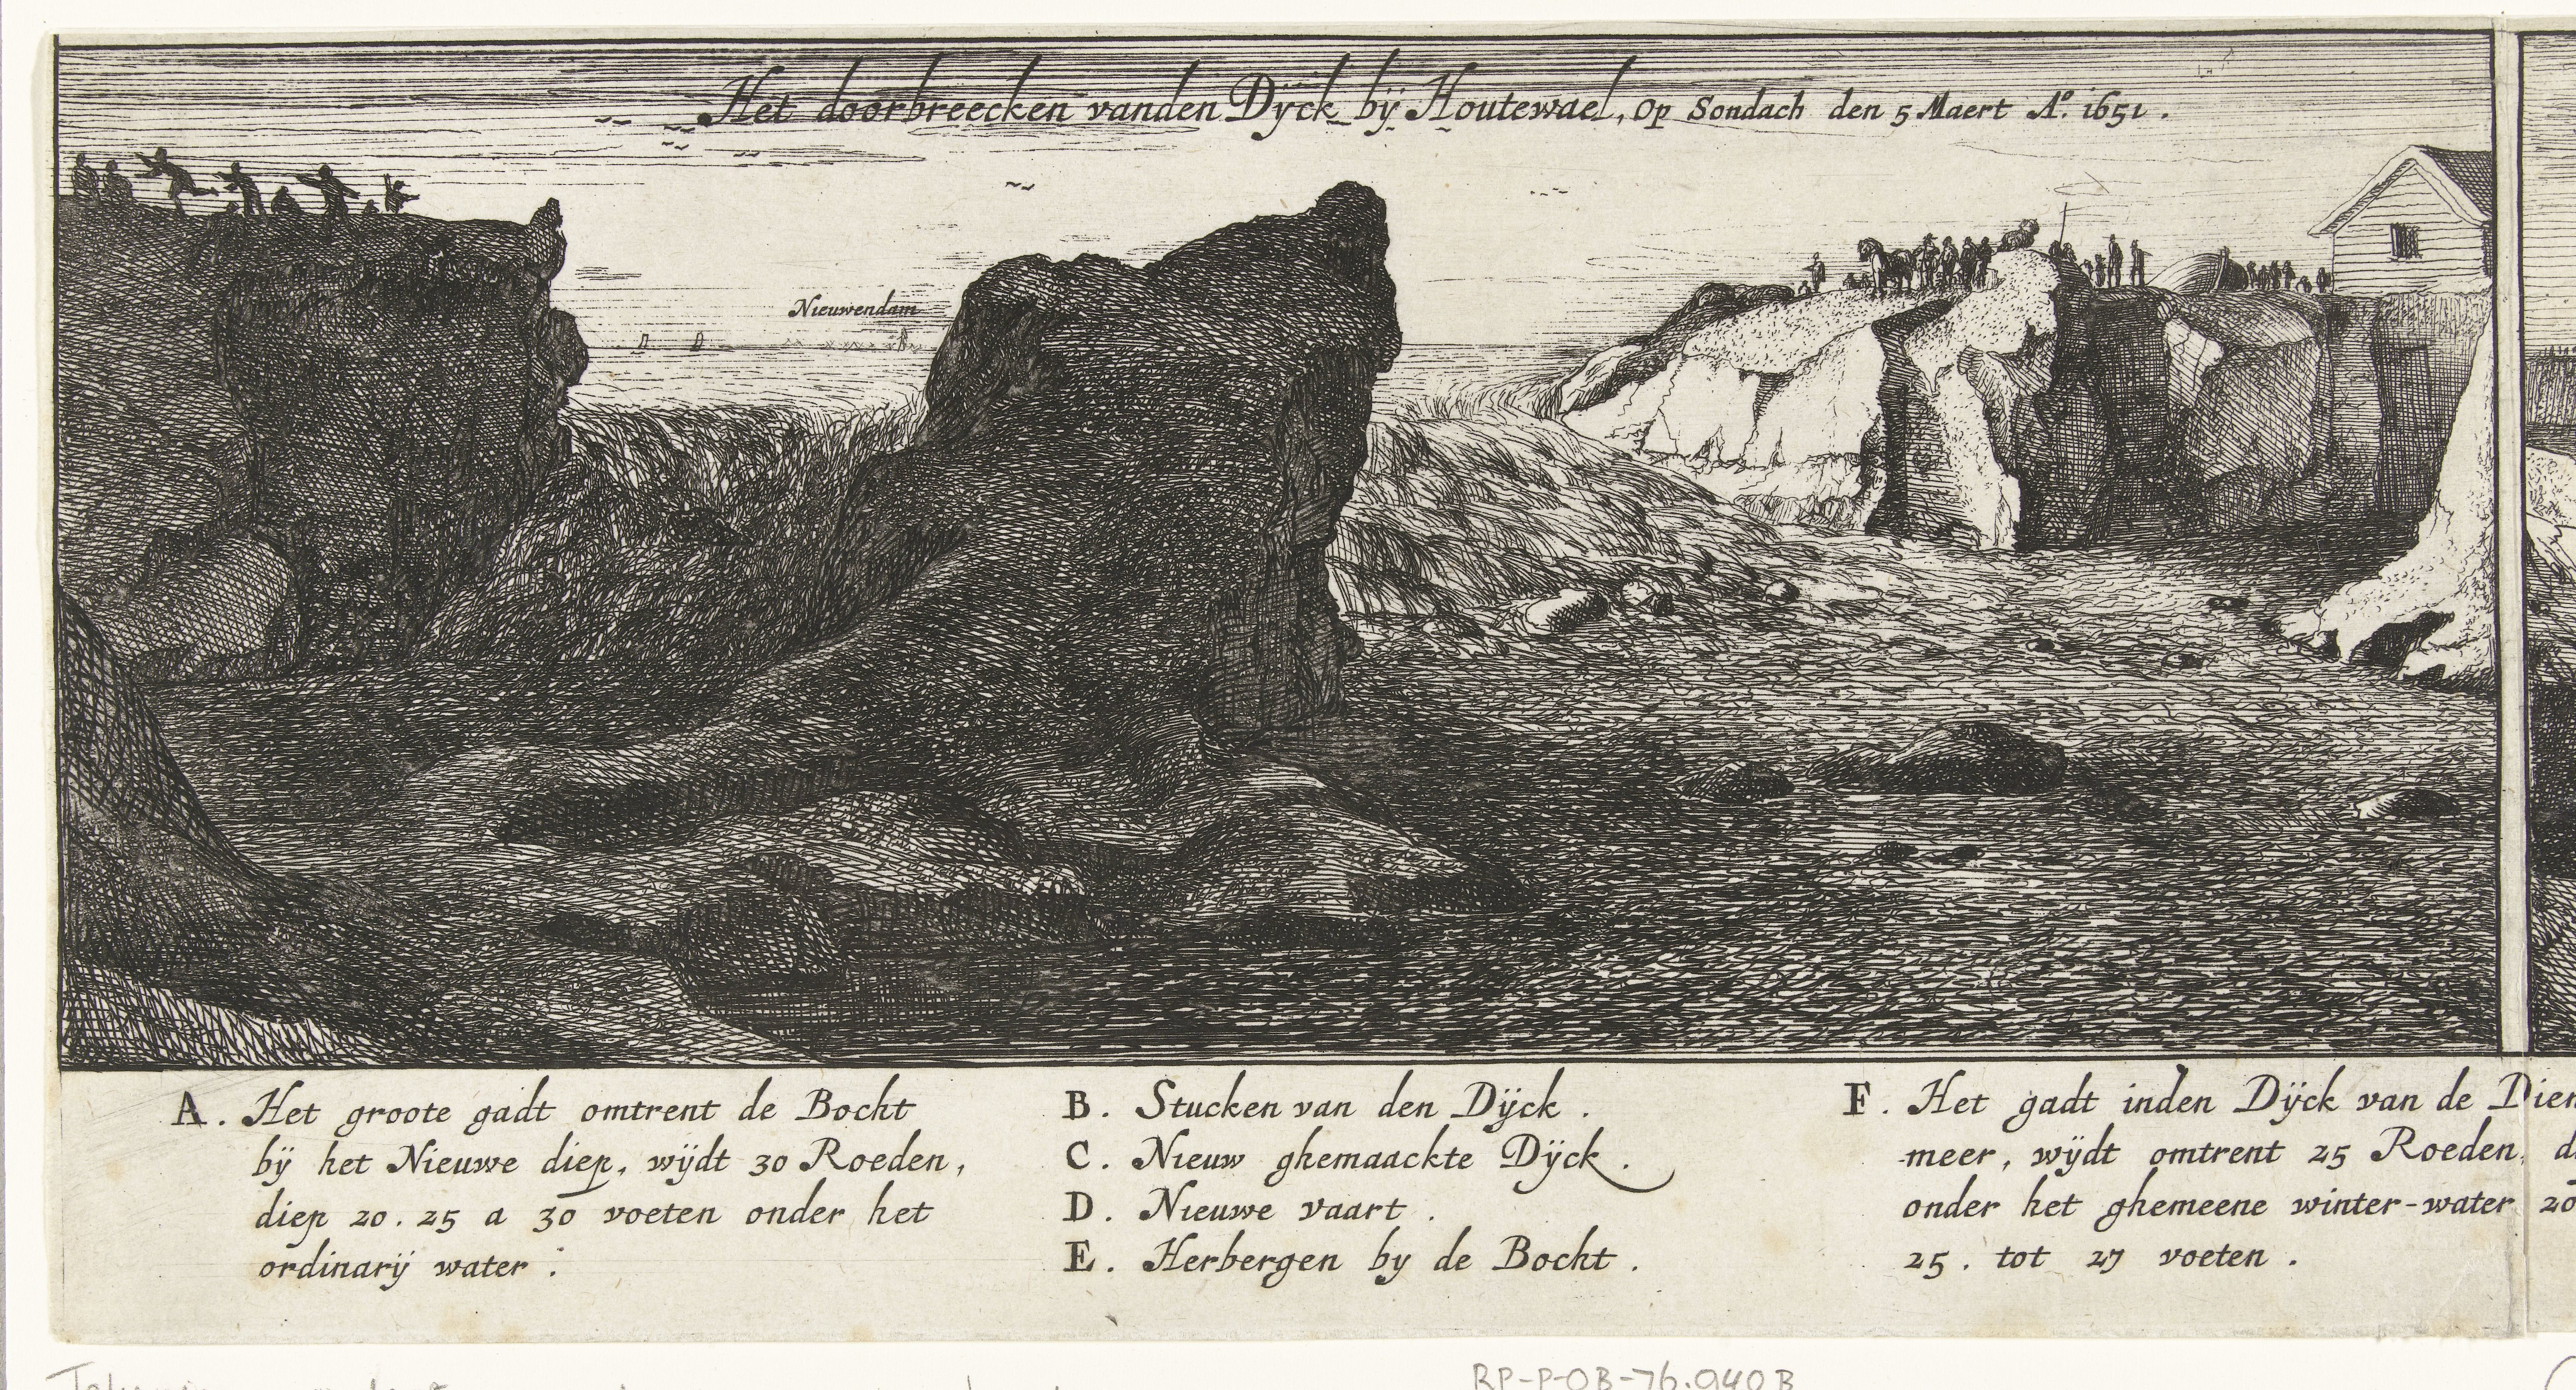 Het doorbreecken vanden Dÿck bÿ Houtewael, Op Sondach den 5 Maert Aº. 1651.
Nieuwendam
A. Het groote gadt omtrent de Bocht
bÿ het Nieuwe diep, wÿdt 30 Roeden,
diep 20. 25 a 30 voeten onder het
ordinarÿ water.
B. Stucken van den Dÿck.
C. Nieuw ghemaackte Dÿck.
D. Nieuwe vaart.
E. Herbergen by de Bocht.
F. Het gadt inden Dÿck van de Diem
meer, wÿdt omtrent 25 Roeden, d
onder het ghemeene winter-water 20
25. tot 27 voeten.
RP-P-OB-76.940B